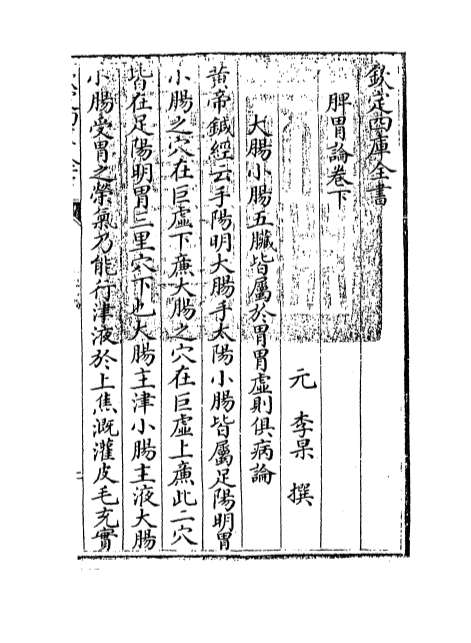 欽定四庫全書
脾胃論卷下
元 李杲 撰
大腸小腸五臟皆屬於胃胃虛則俱病論
黄帝鍼經云手陽明大腸手太陽小腸皆屬足陽明胃
小腸之穴在巨虛下亷大腸之穴在巨虛上亷此二穴
皆在足陽明胃三里穴下也大腸主津小腸主液大腸
小腸受胃之榮氣乃能行津液於上焦溉灌皮毛充實